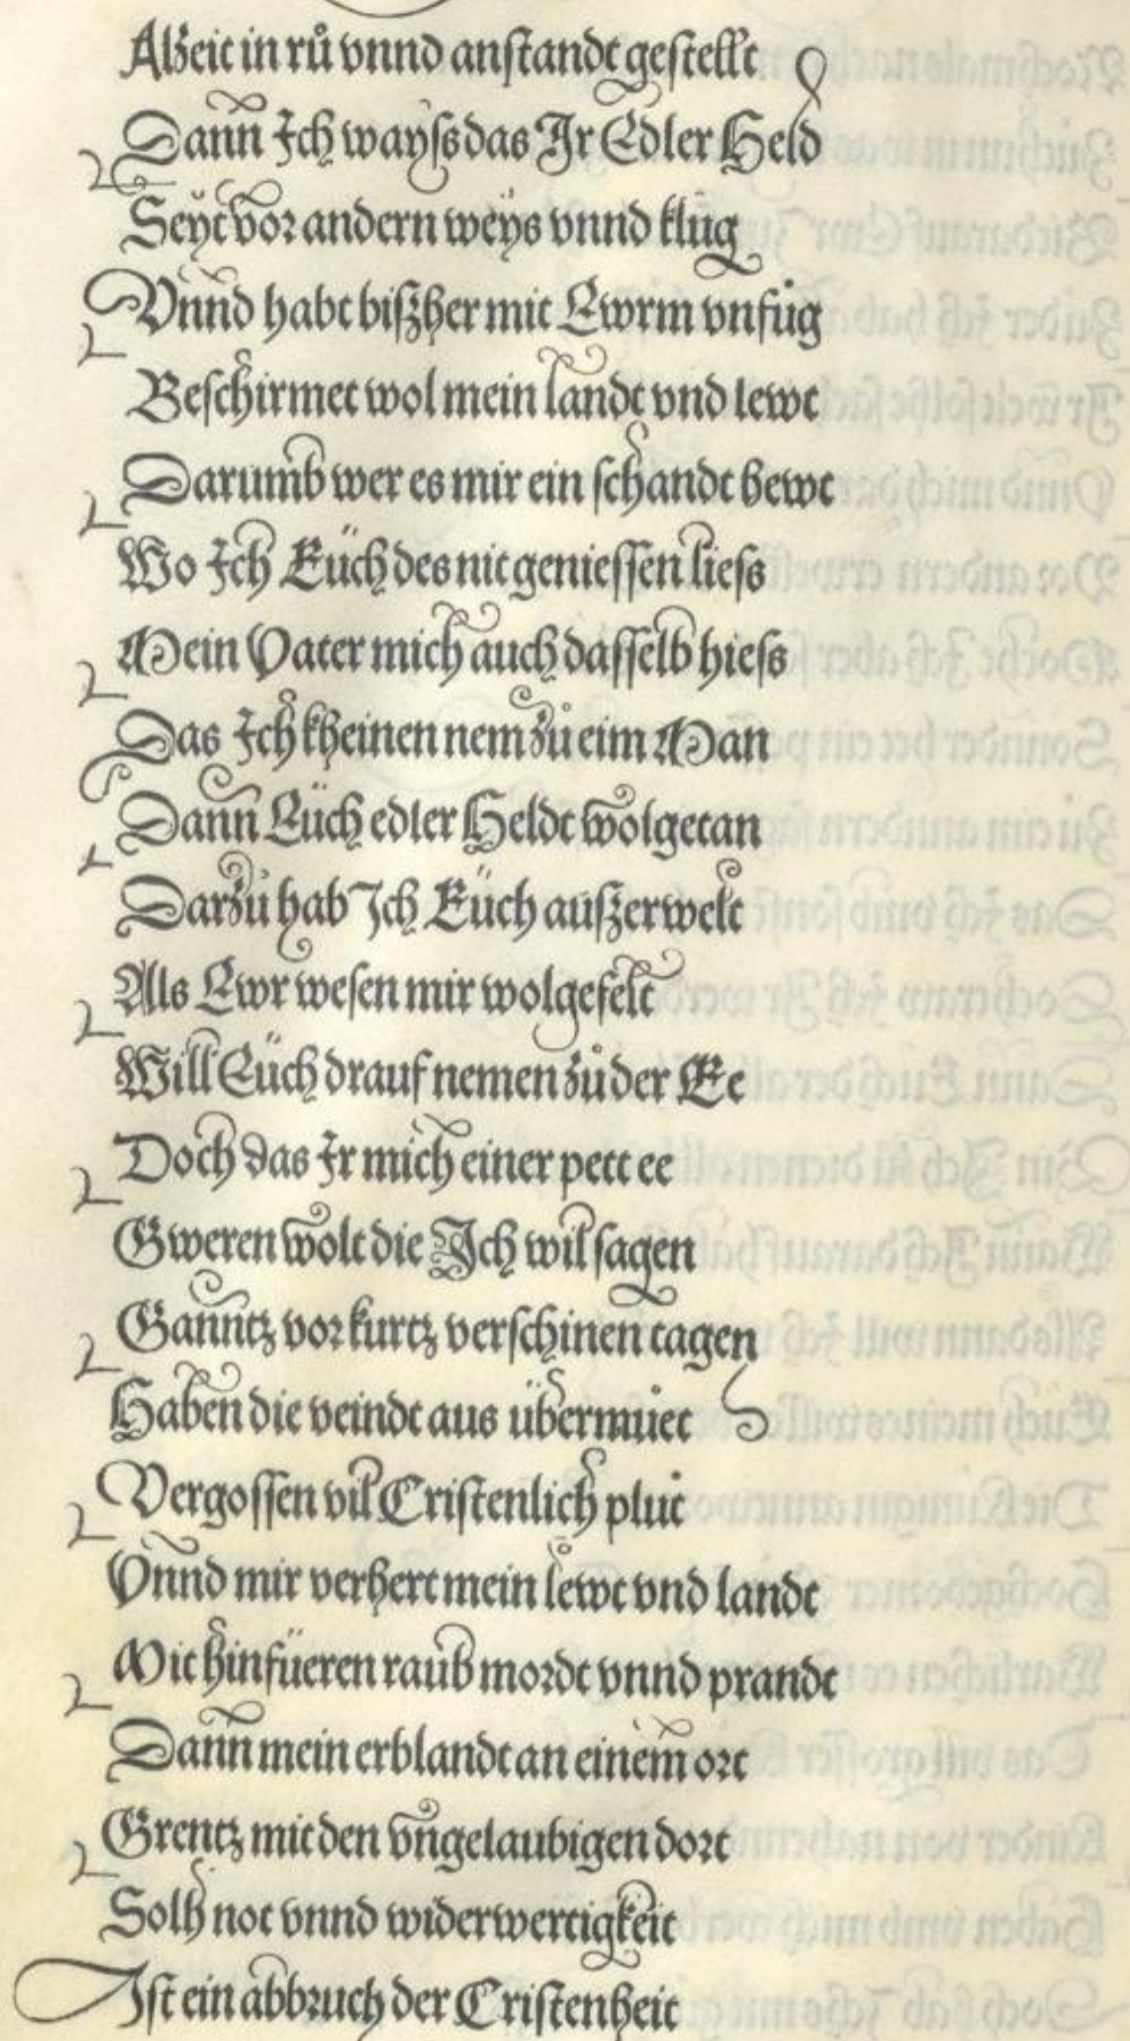 Alzeit in rů vnnd anstandt gestellt
Dann Ich wayss das Ir Edler Held
Seyt vor andern weys vnnd klůg
Vnnd habt biszher mit Ewrm vnfůg
Beschirmet wol mein landt vnd lewt
Darumb wer es mir ein schandt hewt
Wo Ich Eüch des nit geniessen liess
Mein Vater mich auch dasselb hiess
Das Ich kheinen nem zů eim Man
Dann Eüch edler Heldt wolgetan
Darzů hab Ich Eüch auszerwelt
Als Ewr wesen mir wolgefelt
Will Eüch drauf nemen zů der Ee
Doch das Ir mich einer pett ee
Gweren wolt die Ich wil sagen
Ganntz vor kurtz verschinen tagen
Haben die veindt aus übermůet
Vergossen vil Cristenlich plůt
Vnnd mir verhert mein lewt vnd landt
Mit hinfüeren raub mordt vnnd prandt
Dann mein erblandt an einem ort
Grentz mit den vngelaubigen dort
Solh not vnnd widerwertigkeit
Ist ein abbruch der Cristenheit